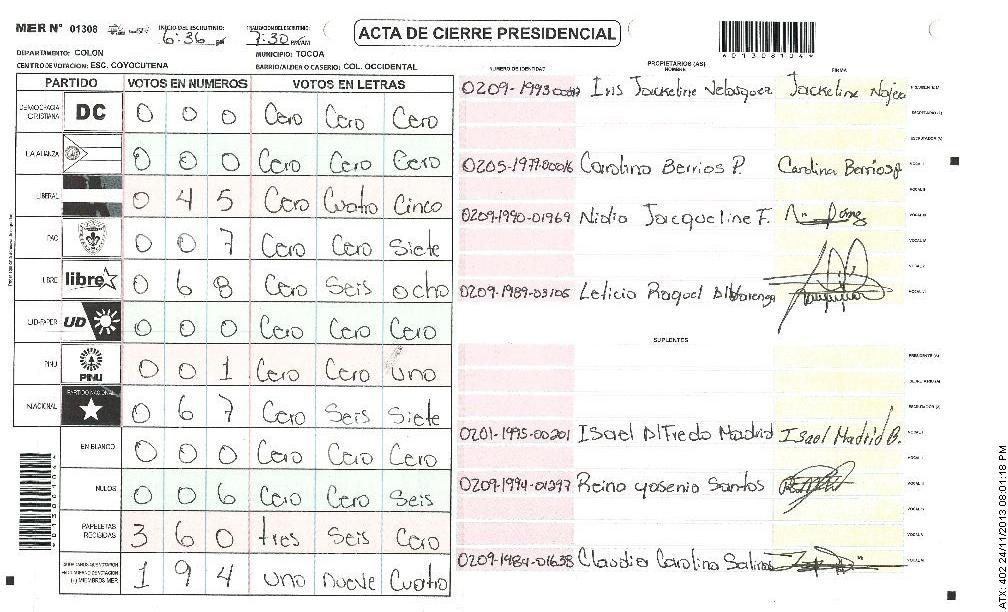 MER N° 01308
INICIO DEL ESCRUTINIO: 6:36 pm
7:30 PM/AM
ACTA DE CIERRE PRESIDENCIAL
DEPARTAMENTO: COLON
MUNICIPIO: TOCOA
CENTRO DE VOTACION: ESC. COYOCUTENA
BARRIO/ALDEA O CASERIO: COL. OCCIDENTAL
PARTIDO VOTOS EN NUMEROS VOTOS EN LETRAS
DEMOCRACIA CRISTIANA DC 0 0 0 Cero Cero Cero
LA ALIANZA 0 0 0 Cero Cero Cero
LIBERAL 0 4 5 Cero Cuatro Cinco
PAC 0 0 7 Cero Cero Siete
LIBRE libre 0 6 8 Cero Seis ocho
UD-FAPER UD 0 0 0 Cero Cero Cero
PINU PINU 0 0 1 Cero Cero uno
NACIONAL PARTIDO NACIONAL 0 6 7 Cero Seis Siete
EN BLANCO 0 0 0 Cero Cero Cero
NULOS 0 0 6 Cero Cero Seis
PAPELETAS RECIBIDAS 3 6 0 tres Seis Cero
(+) MIEMBROS MER 1 9 4 uno nueve Cuatro
NUMERO DE IDENTIDAD PROPIETARIOS (AS) NOMBRE FIRMA
0209-1993 Iris Jackeline Velasquez Jackeline Najera
0205-1979-00016 Carolina Berrios P. Carolina Berrios P.
0209-1990-01969 Nidia Jacqueline F.
0209-1989-03105 Leticia Raquel
SUPLENTES
0201-1995-00201 Isael Alfredo Madrid Isael Madrid B.
0209-1994-01297 Reina yosenia Santos
0209-1984-01638 Claudia Carolina Salinas
ATX: 402 24/11/2013 08:01:18 PM